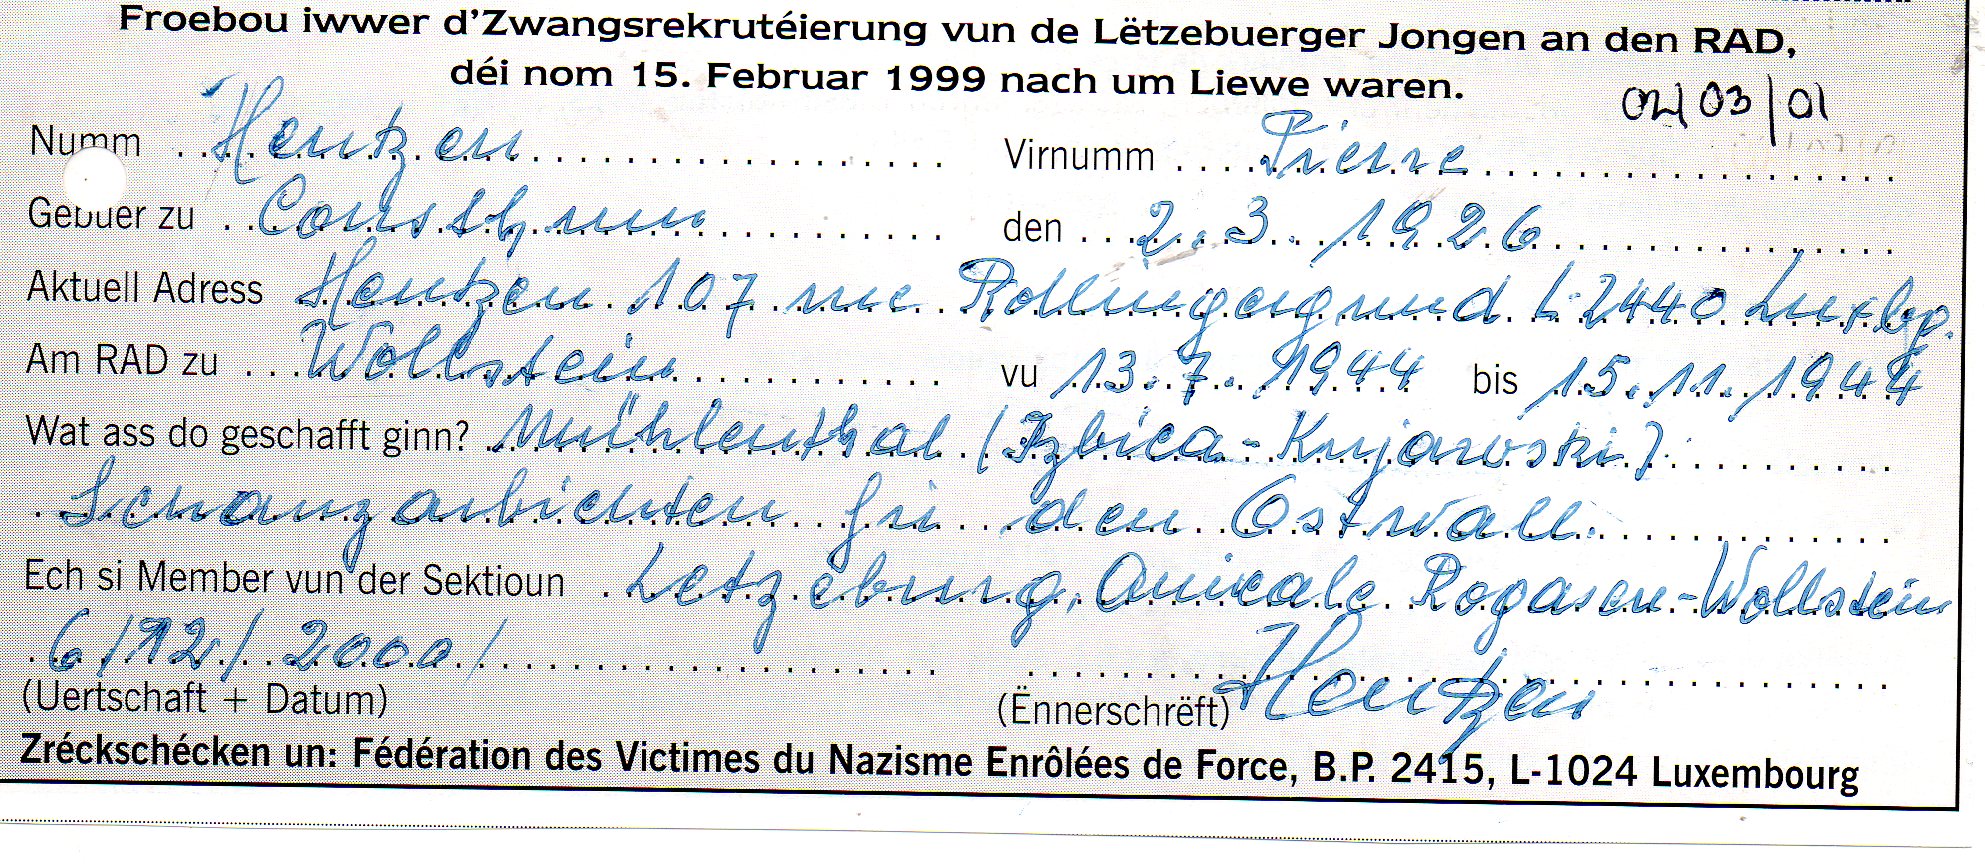 Froebou iwwer d'Zwangsrekrutéierung vun de Lëtzebuerger Jongen an den RAD,
déi nom 15. Februar 1999 nach um Liewe waren.
02/03/01
Numm Hentzen Virnumm Pierre
Gebuer zu Consthum den 2.3.1926
Aktuell Adress Hentzen 107 rue Rollingergrund L-2440 Luxbg.
Am RAD zu Wollstein vu 13.7.1944 bis 15.11.1944
Wat ass do geschafft ginn? Mühlenthal (Izbica-Kujawski)
Schanzarbichten fir den Ostwall.
Ech si Member vun der Sektioun Letzeburg, Amicale Rogasen-Wollstein
6/12/2000/
(Uertschaft + Datum) (Ënnerschrëft) Hentzen
Zréckschécken un: Fédération des Victimes du Nazisme Enrôlées de Force, B.P. 2415, L-1024 Luxembourg